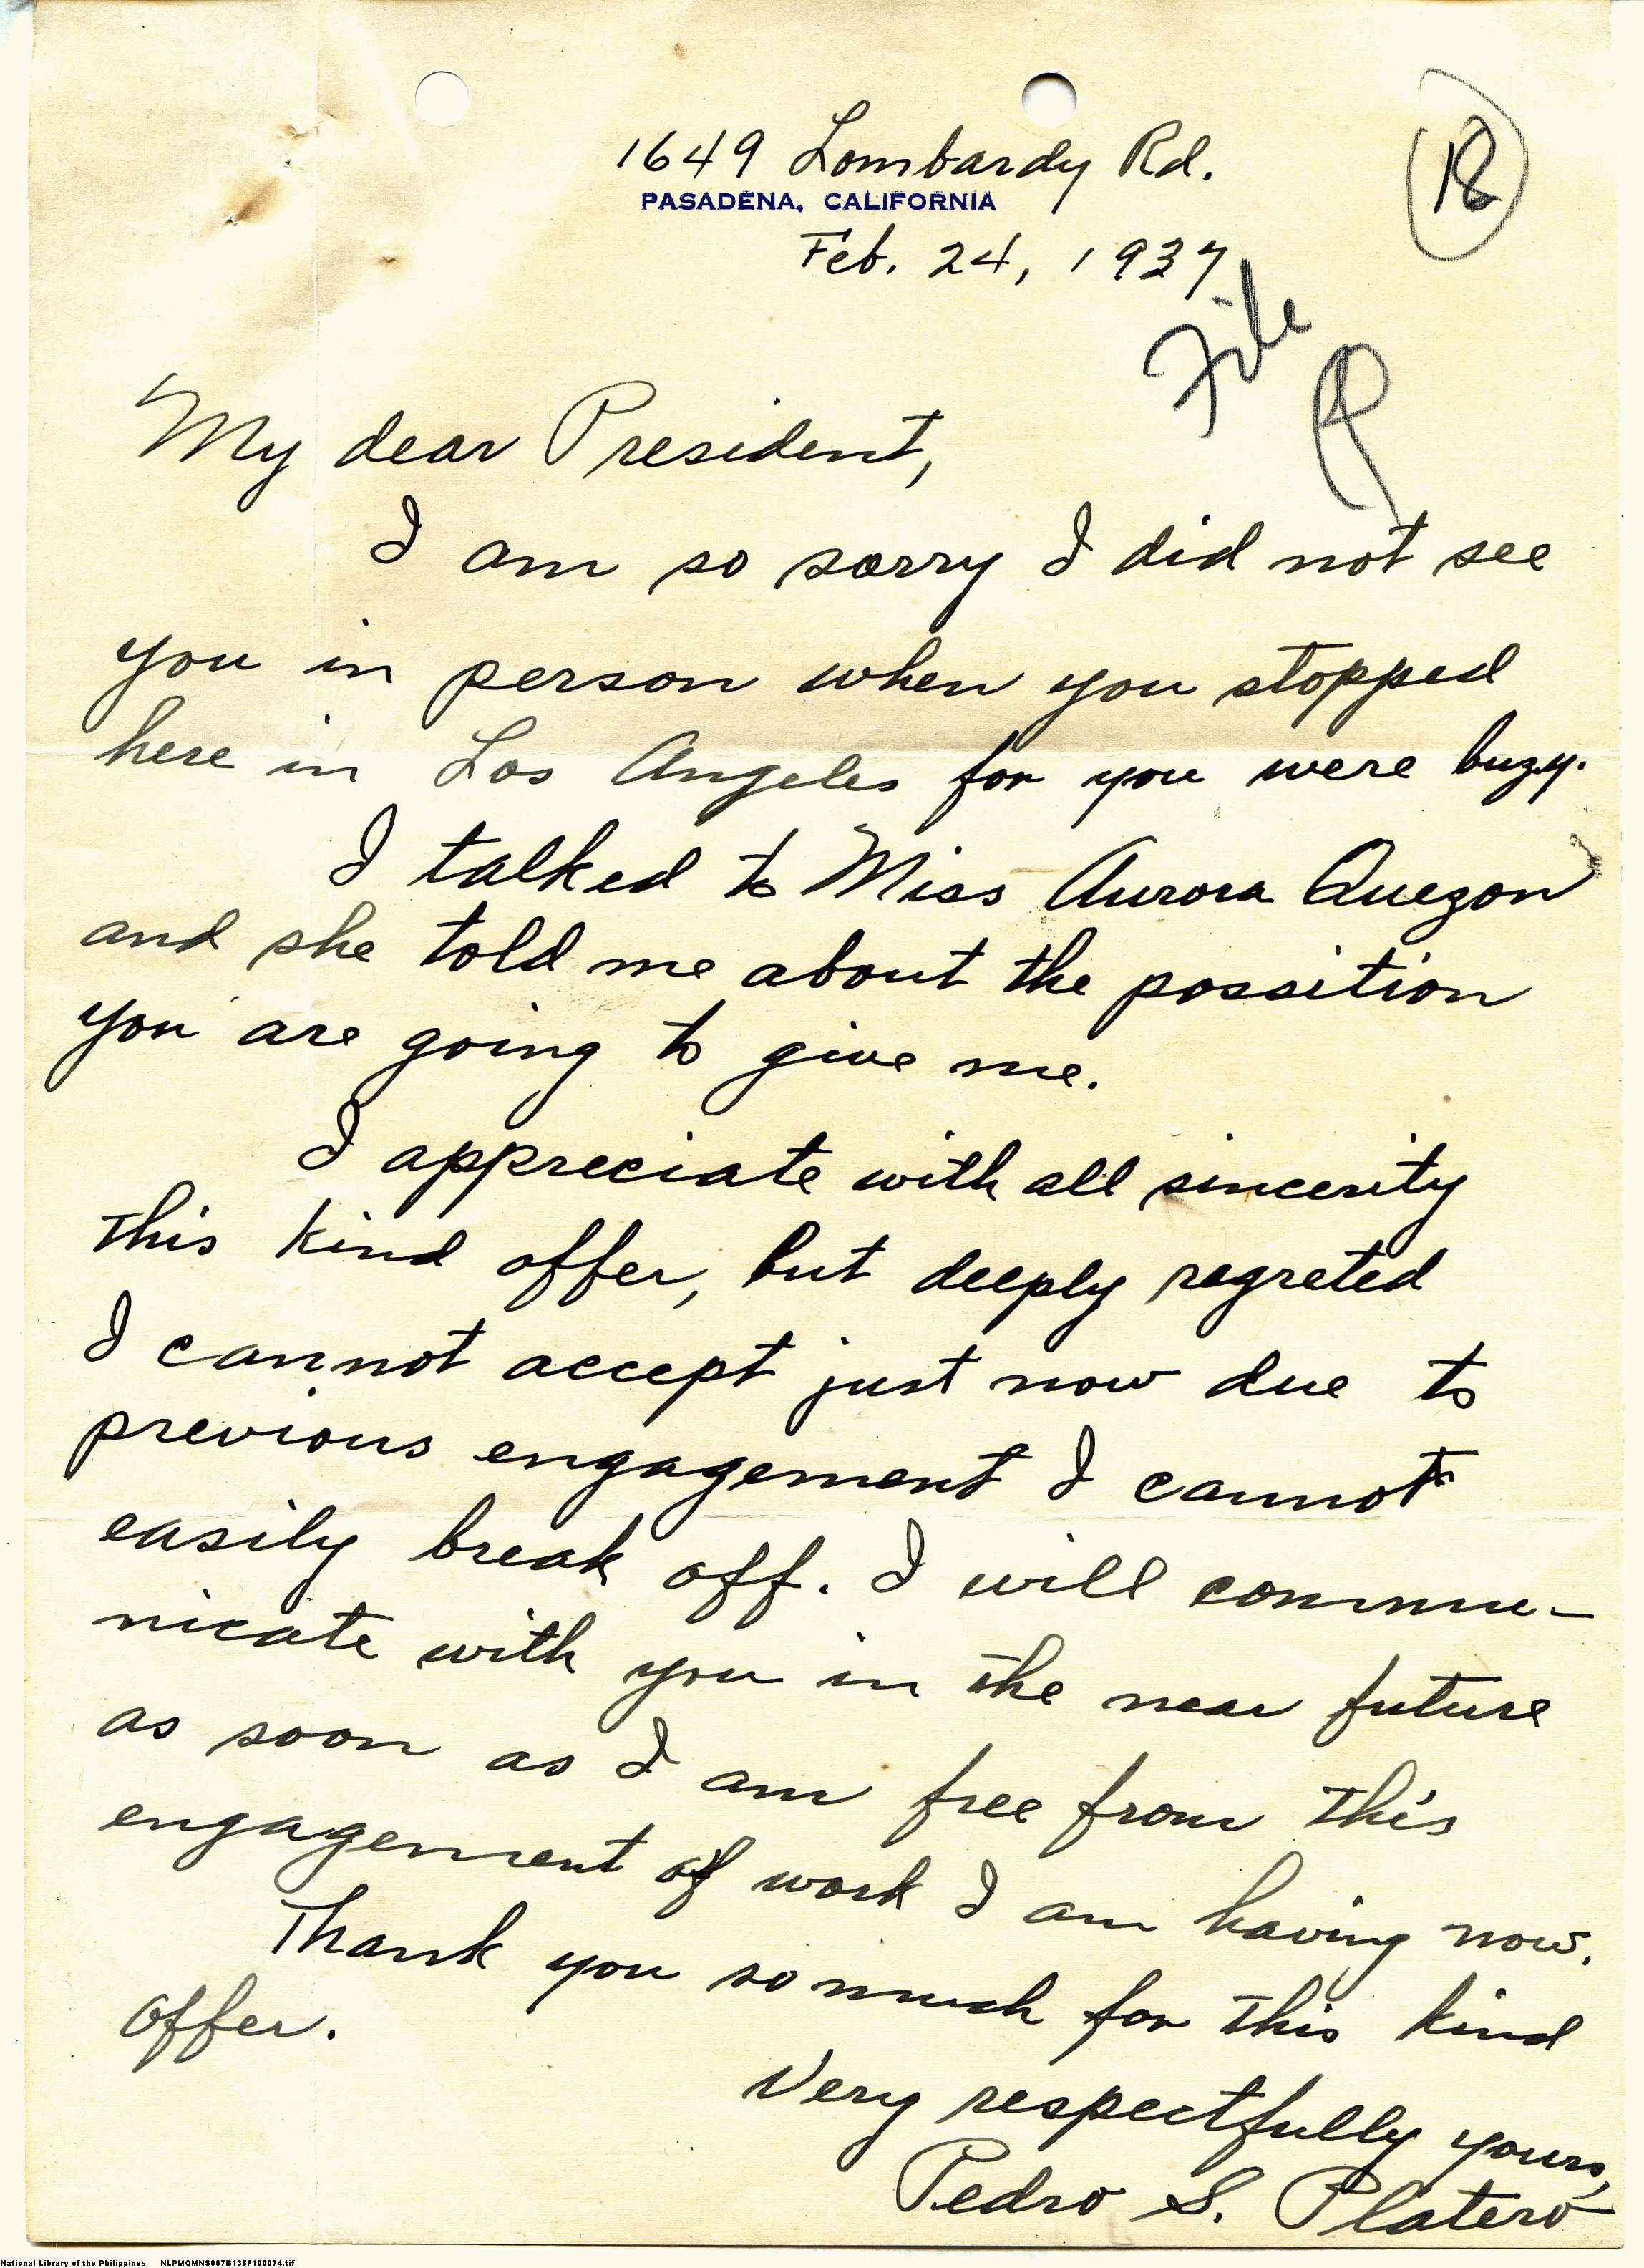 1649 Lombardy Rd.
PASADENA, CALIFORNIA
Feb. 24, 1937
18
File
P
My dear President,
I am so sorry I did not see
you in person when you stopped
here in Los Angeles for you were buzy.
I talked to Miss Aurora Quezon
and she told me about the possition
you are going to give me.
I appreciate with all sincerity
this kind offer, but deeply regreted
I cannot accept just now due to
previous engagement I cannot
easily break off. I will commu-
nicate with you in the near future
as soon as I am free from this
engagement of work I am having now.
Thank you so much for this kind
offer.
Very respectfully yours,
Pedro S. Platero
National Library of the Philippines NLPMQMNS007B135F100074.tif